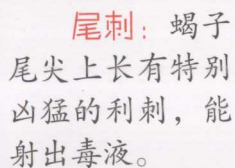 尾刺：蝎子
尾尖上长有特别
凶猛的利刺，能
射出毒液。